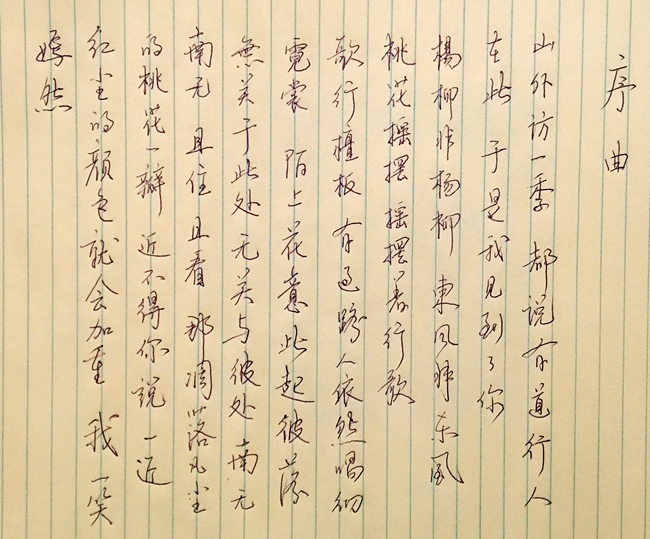 序曲
山外访一季 都说有道行人
在此 于是我见到了你
楊柳非杨柳 東风非东風
桃花摇摆 摇摆着行歌
歌行檀板 有过路人依然唱彻
霓裳 陌上花意此起彼落
無关于此处 无关与彼处 南无
南无 且住 且看 那凋落凡尘
的桃花一瓣 近不得你说 一近
红尘的颜色就会加重 我一笑
嫣然